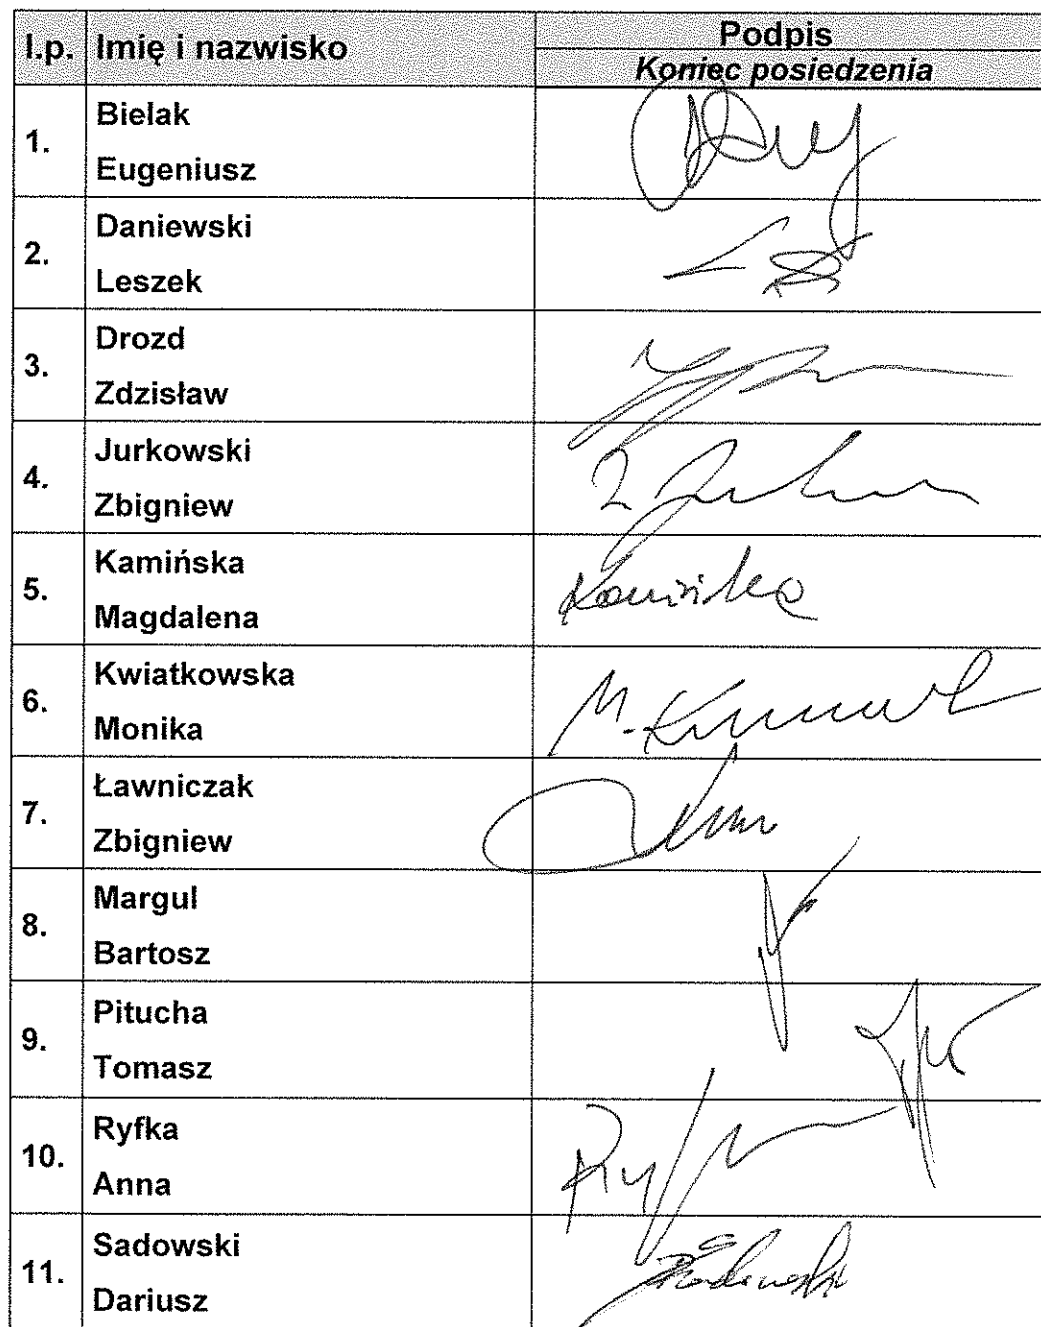 l.p. Imię i nazwisko Podpis
Koniec posiedzenia
1. Bielak
Eugeniusz
2. Daniewski
Leszek
3. Drozd
Zdzisław
4. Jurkowski
Zbigniew
5. Kamińska
Magdalena Kamińska
6. Kwiatkowska
Monika M.
7. Ławniczak
Zbigniew
8. Margul
Bartosz
9. Pitucha
Tomasz
10. Ryfka
Anna
11. Sadowski
Dariusz